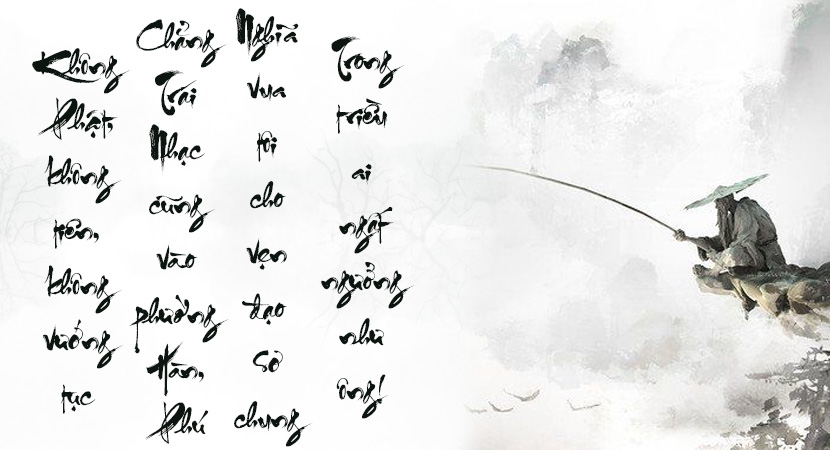 Không Phật, không tiên, không vướng tục
Chẳng Trái Nhạc cũng vào phường Hàn, Phú
Nghĩa vua tôi cho vẹn đạo sơ chung
Trong triều ai ngất ngưởng như ông!